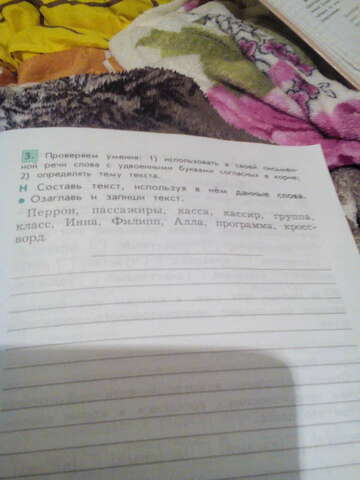 3. Проверяем умения: 1) использовать в своей письмен-
ной речи слова с удвоенными буквами согласных в корне;
2) определять тему текста.
Н Составь текст, используя в нём данные слова.
● Озаглавь и запиши текст.
Перрон, пассажиры, касса, кассир, группа,
класс, Инна, Филипп, Алла, программа, кросс-
ворд.